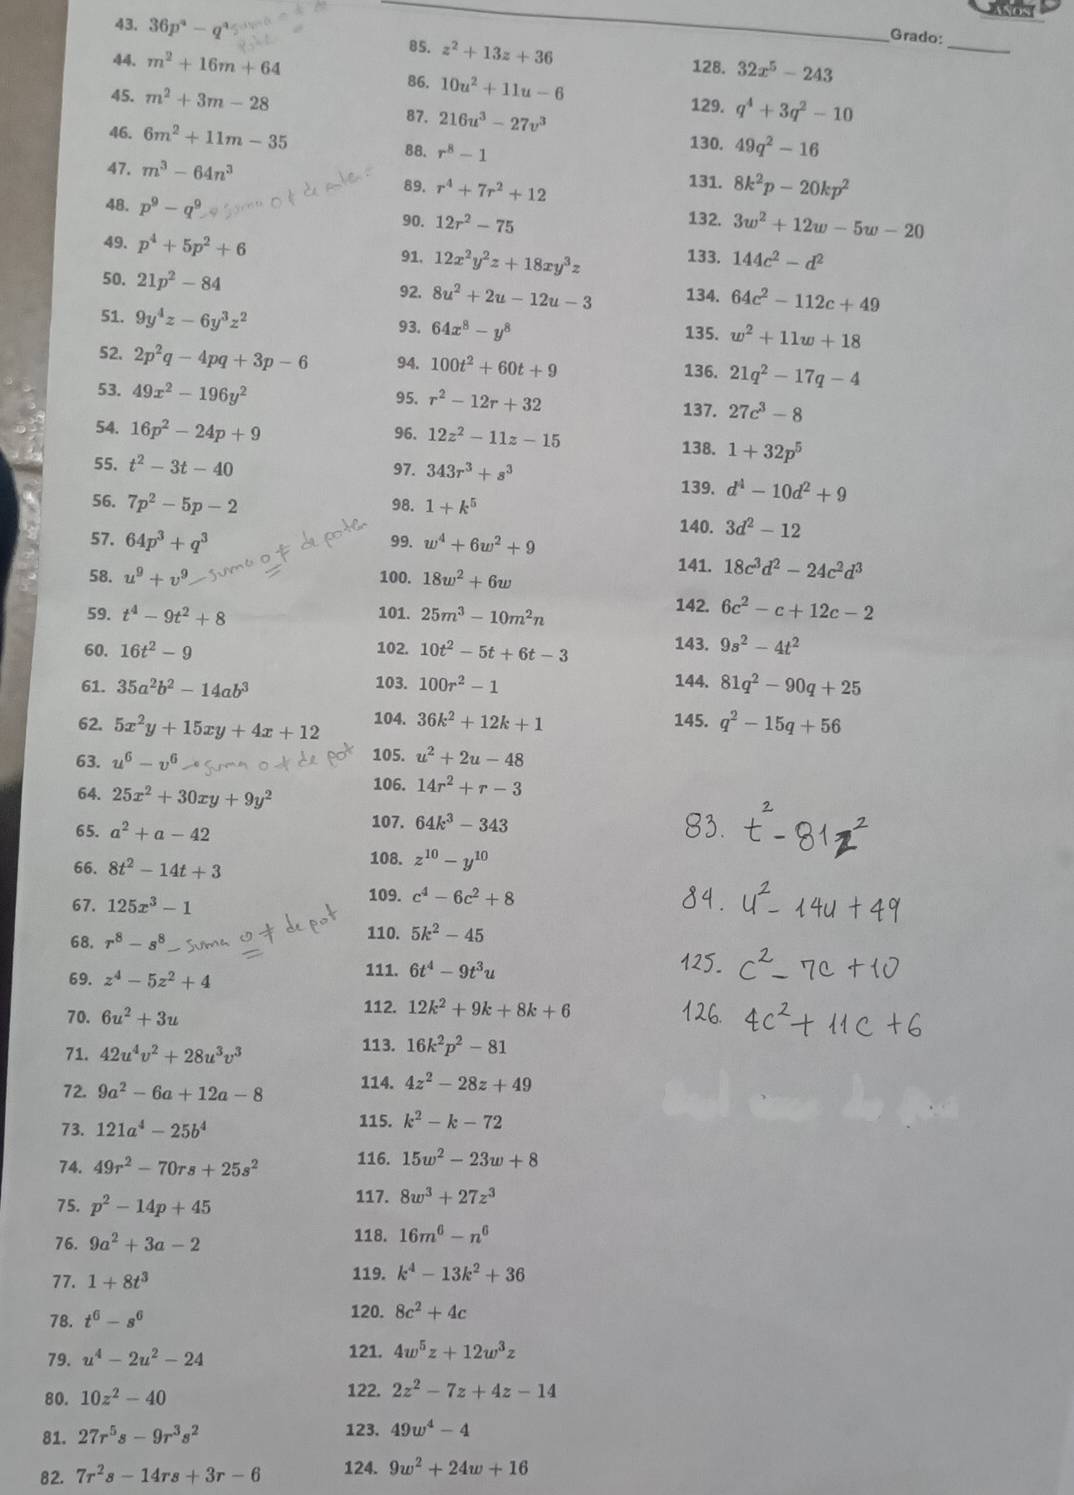 AÑOS
Grado:
43. 36p⁴ − q⁴ suma o ≠ de
44. m² + 16m + 64
45. m² + 3m − 28
46. 6m² + 11m − 35
47. m³ − 64n³
48. p⁹ − q⁹ suma o ≠ de poten
49. p⁴ + 5p² + 6
50. 21p² − 84
51. 9y⁴z − 6y³z²
52. 2p²q − 4pq + 3p − 6
53. 49x² − 196y²
54. 16p² − 24p + 9
55. t² − 3t − 40
56. 7p² − 5p − 2
57. 64p³ + q³
58. u⁹ + v⁹ suma o ≠ de poten
59. t⁴ − 9t² + 8
60. 16t² − 9
61. 35a²b² − 14ab³
62. 5x²y + 15xy + 4x + 12
63. u⁶ − v⁶ suma o ≠ de pot
64. 25x² + 30xy + 9y²
65. a² + a − 42
66. 8t² − 14t + 3
67. 125x³ − 1
68. r⁸ − s⁸ suma o ≠ de pot
69. z⁴ − 5z² + 4
70. 6u² + 3u
71. 42u⁴v² + 28u³v³
72. 9a² − 6a + 12a − 8
73. 121a⁴ − 25b⁴
74. 49r² − 70rs + 25s²
75. p² − 14p + 45
76. 9a² + 3a − 2
77. 1 + 8t³
78. t⁶ − s⁶
79. u⁴ − 2u² − 24
80. 10z² − 40
81. 27r⁵s − 9r³s²
82. 7r²s − 14rs + 3r − 6
85. z² + 13z + 36
86. 10u² + 11u − 6
87. 216u³ − 27v³
88. r⁸ − 1
89. r⁴ + 7r² + 12
90. 12r² − 75
91. 12x²y²z + 18xy³z
92. 8u² + 2u − 12u − 3
93. 64x⁸ − y⁸
94. 100t² + 60t + 9
95. r² − 12r + 32
96. 12z² − 11z − 15
97. 343r³ + s³
98. 1 + k⁵
99. w⁴ + 6w² + 9
100. 18w² + 6w
101. 25m³ − 10m²n
102. 10t² − 5t + 6t − 3
103. 100r² − 1
104. 36k² + 12k + 1
105. u² + 2u − 48
106. 14r² + r − 3
107. 64k³ − 343
108. z¹⁰ − y¹⁰
109. c⁴ − 6c² + 8
110. 5k² − 45
111. 6t⁴ − 9t³u
112. 12k² + 9k + 8k + 6
113. 16k²p² − 81
114. 4z² − 28z + 49
115. k² − k − 72
116. 15w² − 23w + 8
117. 8w³ + 27z³
118. 16m⁶ − n⁶
119. k⁴ − 13k² + 36
120. 8c² + 4c
121. 4w⁵z + 12w³z
122. 2z² − 7z + 4z − 14
123. 49w⁴ − 4
124. 9w² + 24w + 16
128. 32x⁵ − 243
129. q⁴ + 3q² − 10
130. 49q² − 16
131. 8k²p − 20kp²
132. 3w² + 12w − 5w − 20
133. 144c² − d²
134. 64c² − 112c + 49
135. w² + 11w + 18
136. 21q² − 17q − 4
137. 27c³ − 8
138. 1 + 32p⁵
139. d⁴ − 10d² + 9
140. 3d² − 12
141. 18c³d² − 24c²d³
142. 6c² − c + 12c − 2
143. 9s² − 4t²
144. 81q² − 90q + 25
145. q² − 15q + 56
83. t² − 81z²
84. u² − 14u + 49
125. c² − 7c + 10
126. 4c² + 11c + 6